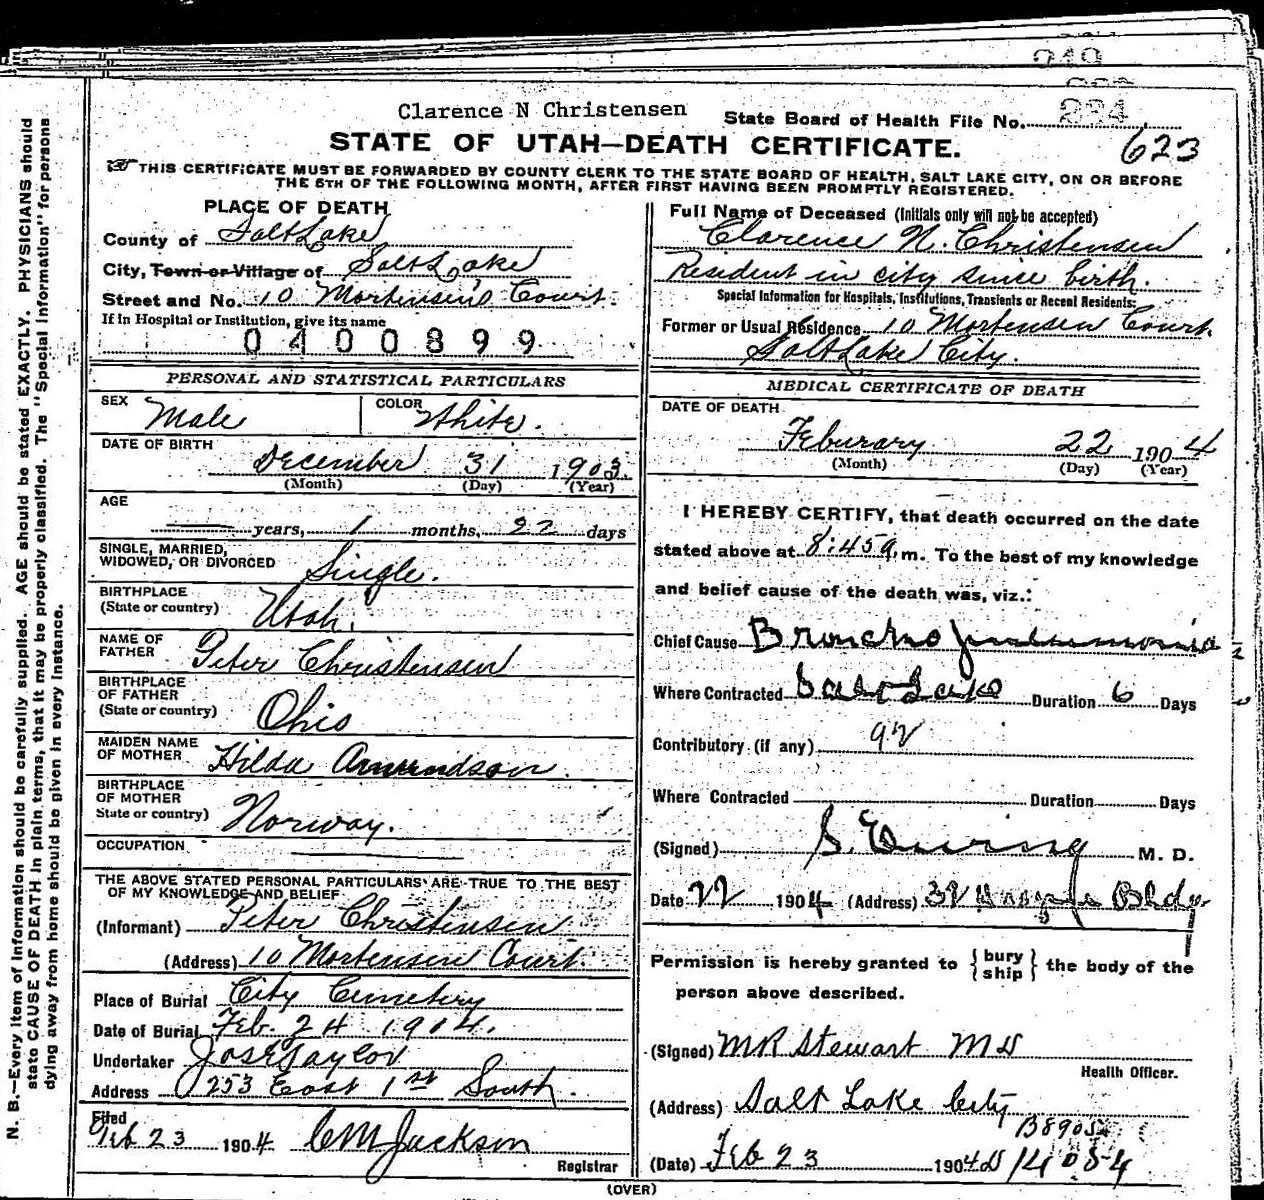 249
224
Clarence N Christensen
State Board of Health File No. 224
623
STATE OF UTAH—DEATH CERTIFICATE.
THIS CERTIFICATE MUST BE FORWARDED BY COUNTY CLERK TO THE STATE BOARD OF HEALTH, SALT LAKE CITY, ON OR BEFORE
THE 5TH OF THE FOLLOWING MONTH, AFTER FIRST HAVING BEEN PROMPTLY REGISTERED.
PLACE OF DEATH
County of Salt Lake
City, Town or Village of Salt Lake
Street and No. 10 Mortensens Court.
If in Hospital or Institution, give its name
0400899
Full Name of Deceased (Initials only will not be accepted)
Clarence N. Christensen
Resident in city since birth.
Special Information for Hospitals, Institutions, Transients or Recent Residents:
Former or Usual Residence 10 Mortensen Court
Salt Lake City.
PERSONAL AND STATISTICAL PARTICULARS
SEX Male
COLOR White.
DATE OF BIRTH
December 31 1903.
(Month) (Day) (Year)
AGE
years, 1 months, 22 days
SINGLE, MARRIED,
WIDOWED, OR DIVORCED Single.
BIRTHPLACE
(State or country) Utah.
NAME OF
FATHER Peter Christensen
BIRTHPLACE
OF FATHER
(State or country) Ohio
MAIDEN NAME
OF MOTHER Hilda Amundson.
BIRTHPLACE
OF MOTHER
State or country) Norway.
OCCUPATION
THE ABOVE STATED PERSONAL PARTICULARS ARE TRUE TO THE BEST
OF MY KNOWLEDGE AND BELIEF
(Informant) Peter Christensen
(Address) 10 Mortensen Court.
Place of Burial City Cemetery
Date of Burial Feb. 24 1904.
Undertaker Jos E Taylor
Address 253 East 1st South.
Filed
Feb 23 1904 CM Jackson
Registrar
MEDICAL CERTIFICATE OF DEATH
DATE OF DEATH
Feburary 22 1904
(Month) (Day) (Year)
I HEREBY CERTIFY, that death occurred on the date
stated above at 8:45 a.m. To the best of my knowledge
and belief cause of the death was, viz.:
Chief Cause Broncho pneumonia
Where Contracted Salt Lake Duration 6 Days
Contributory (if any) 92
Where Contracted Duration Days
(Signed) S. Ewing M. D.
Date 22 1904 (Address) 32 Bldg.
Permission is hereby granted to {bury
ship} the body of the
person above described.
(Signed) MR Stewart MD
Health Officer.
(Address) Salt Lake City
(Date) Feb 23 1904
14054
(OVER)
N. B.—Every item of information should be carefully supplied. AGE should be stated EXACTLY. PHYSICIANS should
state CAUSE OF DEATH in plain terms, that it may be properly classified. The "Special Information" for persons
dying away from home should be given in every instance.